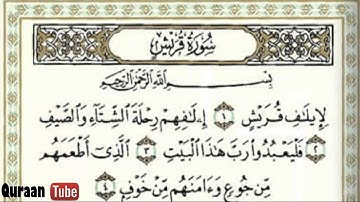 سُورَةُ قُرَيْشٍ
بِسْمِ ٱللَّهِ ٱلرَّحْمَٰنِ ٱلرَّحِيمِ
لِإِيلَٰفِ قُرَيْشٍ ١ إِۦلَٰفِهِمْ رِحْلَةَ ٱلشِّتَآءِ وَٱلصَّيْفِ
٢ فَلْيَعْبُدُوا۟ رَبَّ هَٰذَا ٱلْبَيْتِ ٣ ٱلَّذِىٓ أَطْعَمَهُم
مِّن جُوعٍ وَءَامَنَهُم مِّنْ خَوْفٍۭ ٤
Quraan Tube